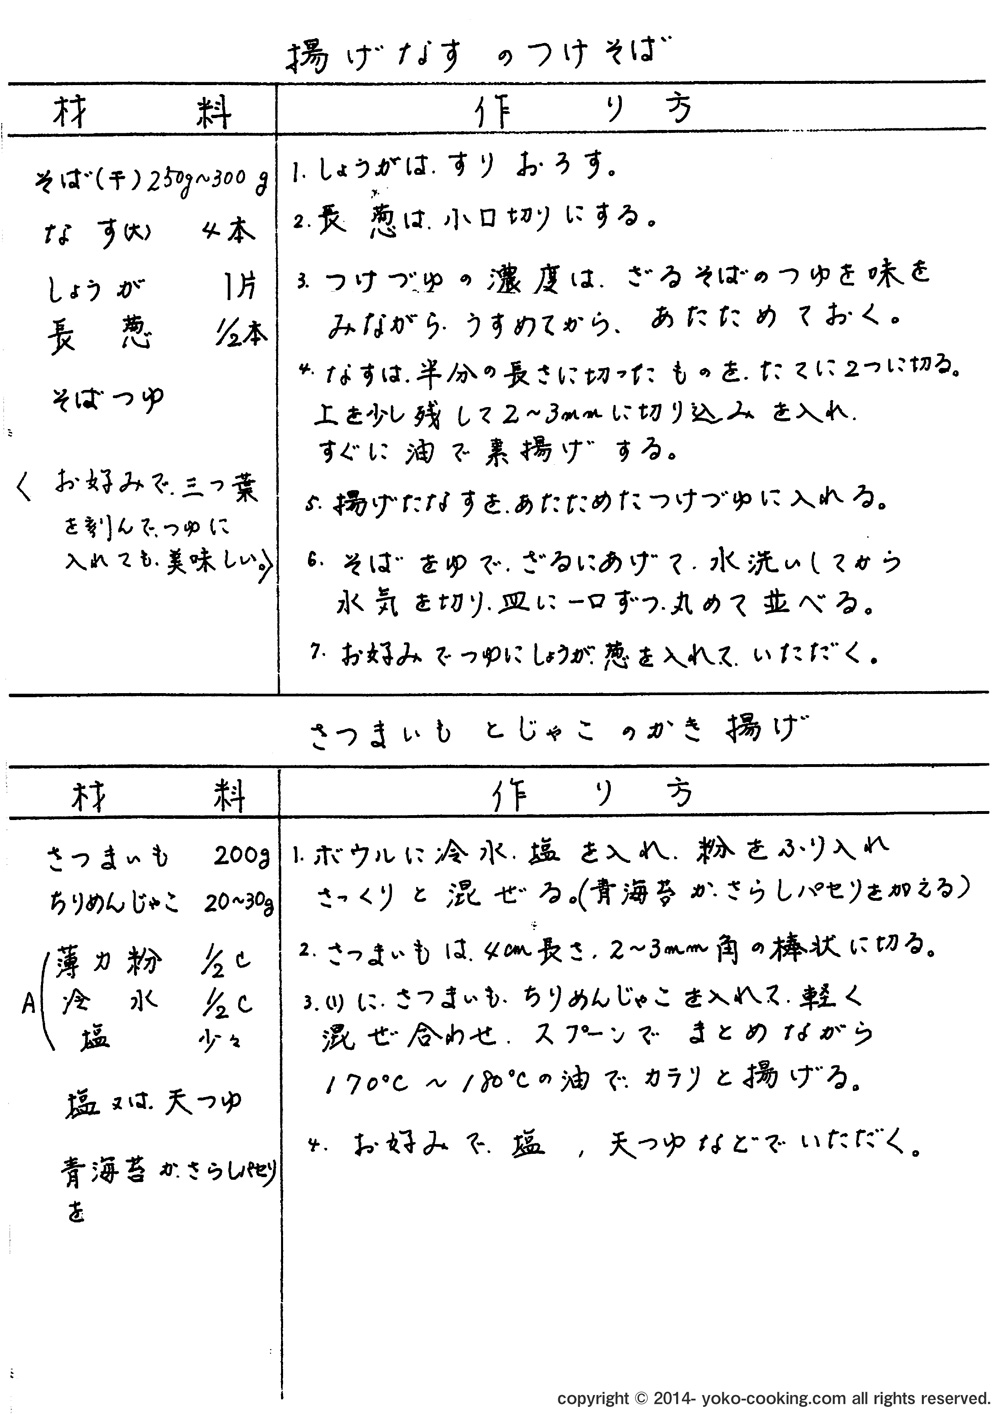 揚げなすのつけそば
材料
作り方
そば(干)250g~300g
なす(大) 4本
しょうが 1片
長葱 1/2本
そばつゆ
〈お好みで、三つ葉
を刻んで、つゆに
入れても、美味しい。〉
1. しょうがは、すりおろす。
2. 長葱は、小口切りにする。
3. つけづゆの濃度は、ざるそばのつゆを味を
みながら、うすめてから、あたためておく。
4. なすは、半分の長さに切ったものを、たてに2つに切る。
上を少し残して2~3mmに切り込みを入れ、
すぐに油で素揚げする。
5. 揚げたなすを、あたためたつけづゆに入れる。
6. そばをゆで、ざるにあげて、水洗いしてから
水気を切り、皿に一口ずつ、丸めて並べる。
7. お好みでつゆにしょうが、葱を入れて、いただく。
さつまいもとじゃこのかき揚げ
材料
作り方
さつまいも 200g
ちりめんじゃこ 20~30g
A
薄力粉 1/2C
冷水 1/2C
塩 少々
塩又は、天つゆ
青海苔か、さらしパセリ
を
1. ボウルに冷水、塩を入れ、粉をふり入れ
さっくりと混ぜる。(青海苔か、さらしパセリを加える)
2. さつまいもは、4cm長さ、2~3mm角の棒状に切る。
3. (1)に、さつまいも、ちりめんじゃこを入れて、軽く
混ぜ合わせ、スプーンでまとめながら
170℃~180℃の油で、カラリと揚げる。
4. お好みで、塩、天つゆなどでいただく。
copyright © 2014- yoko-cooking.com all rights reserved.